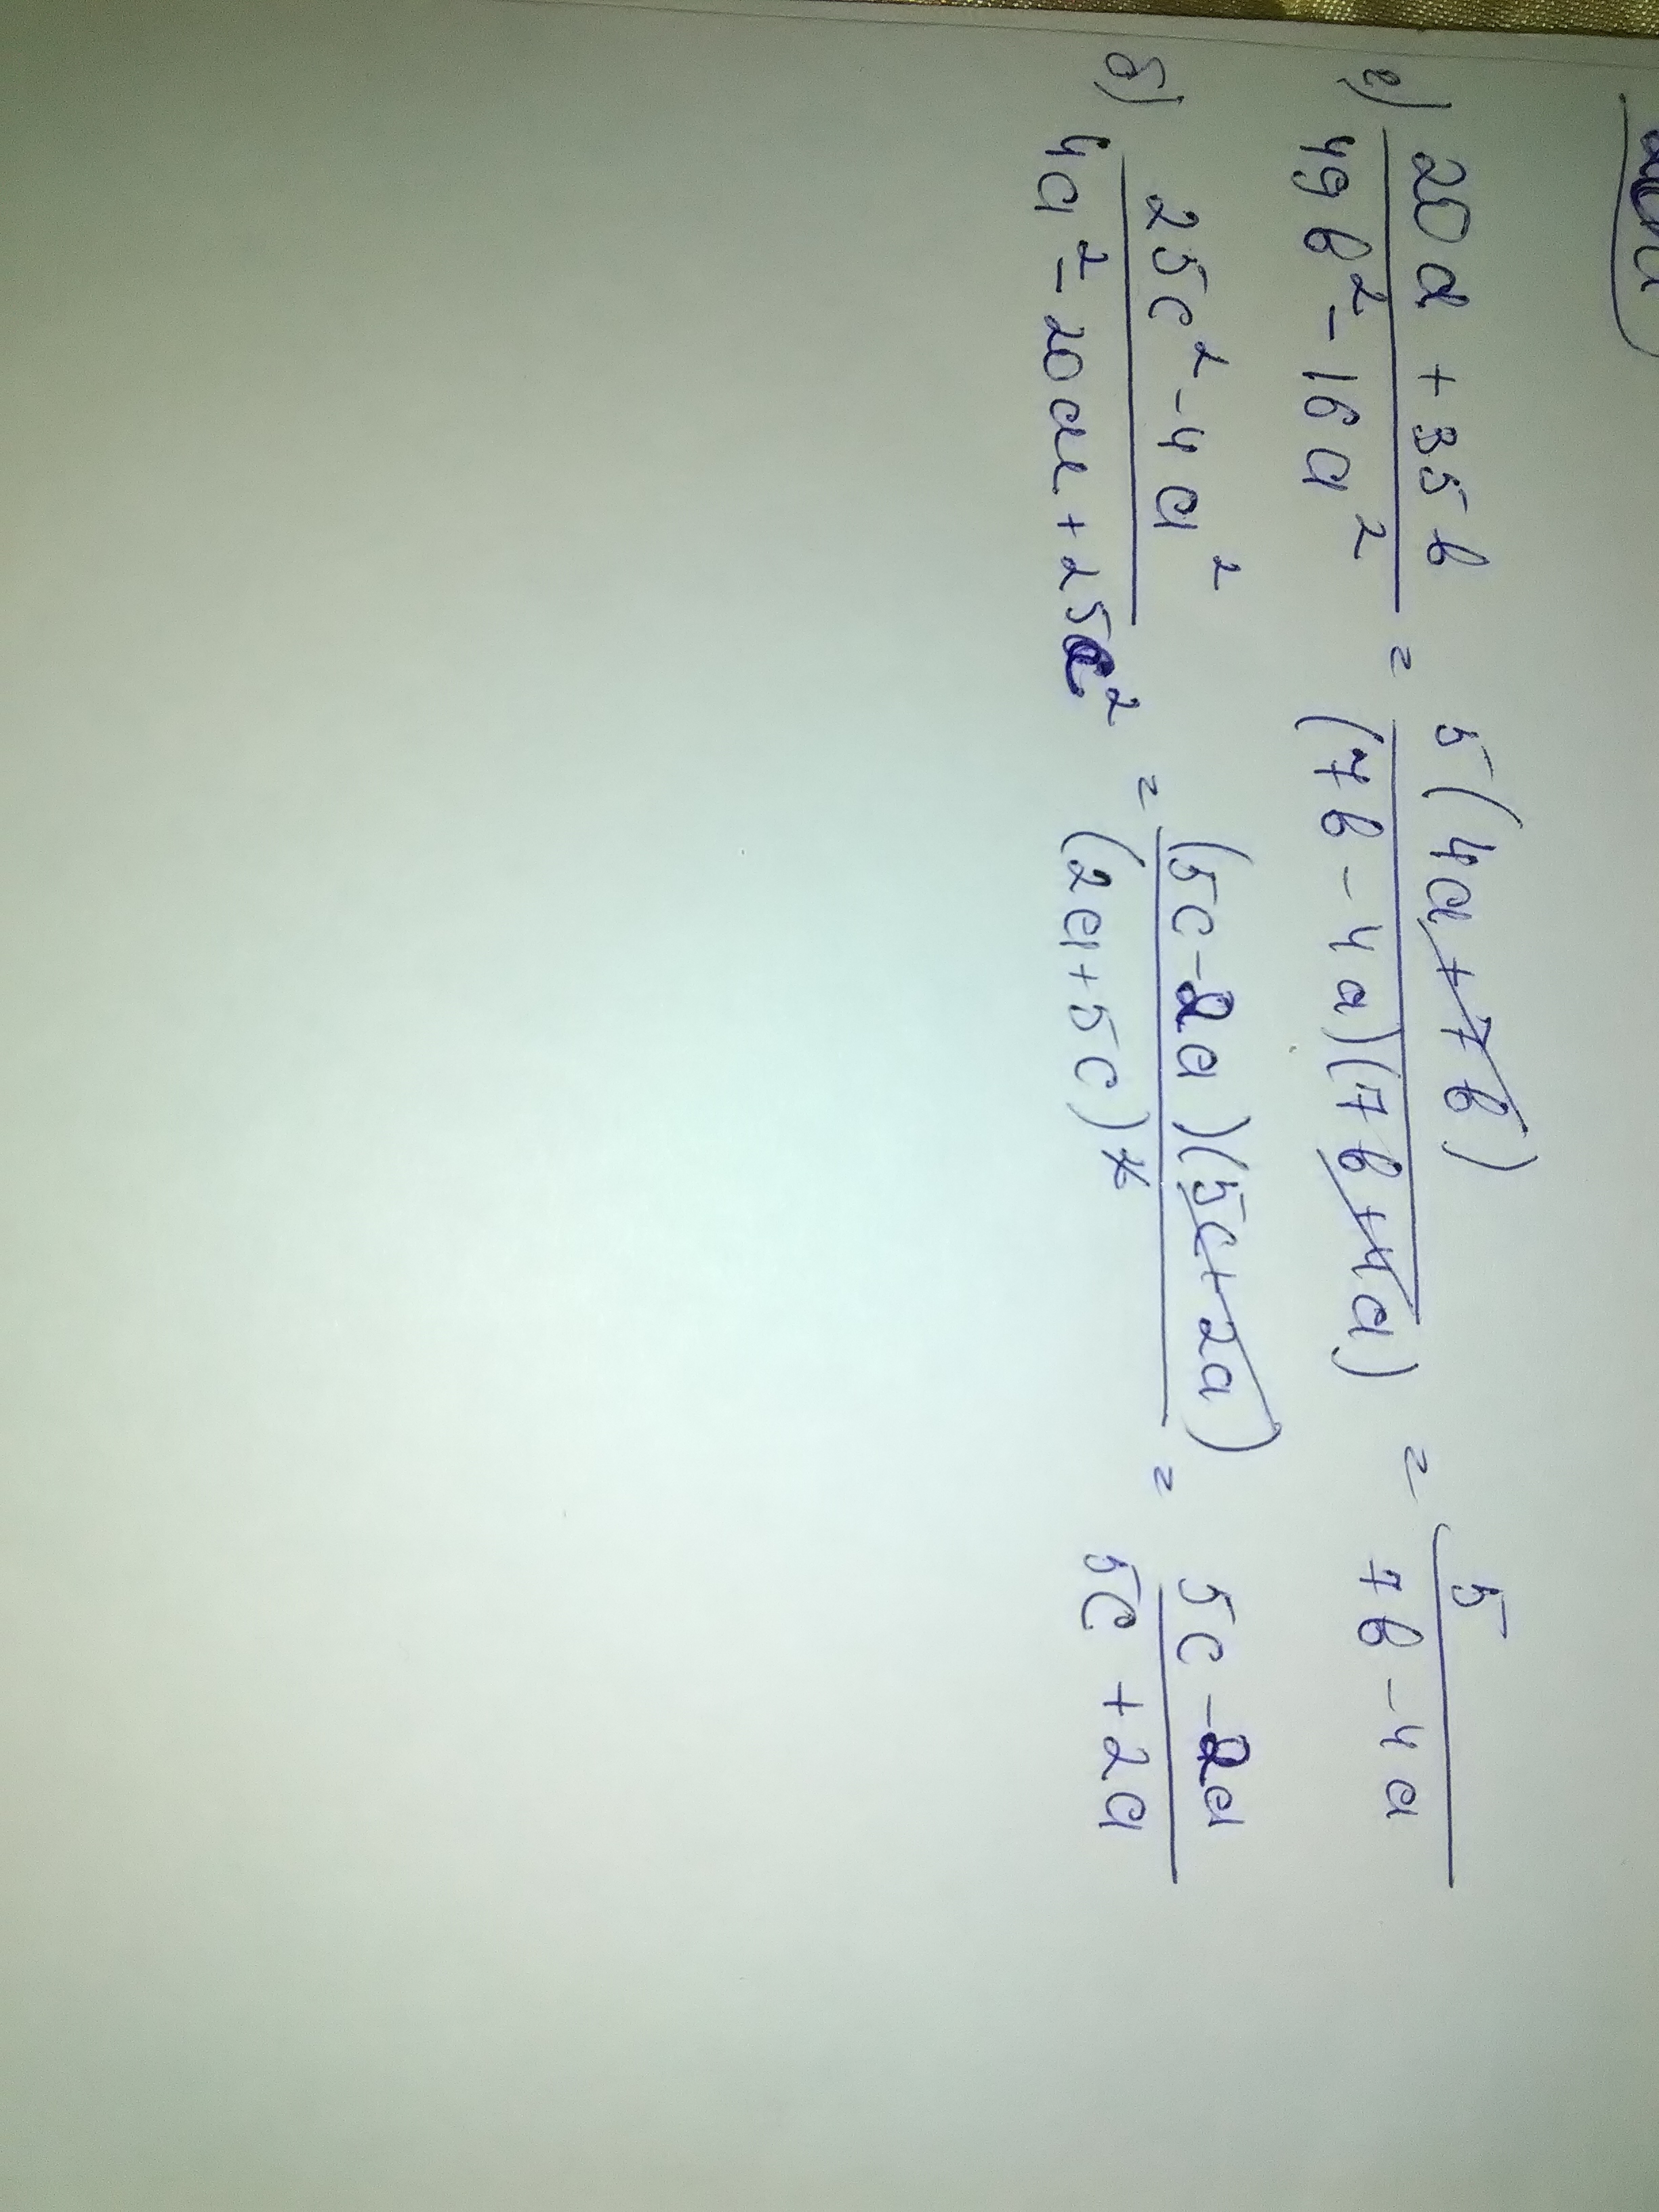 г) (20a + 35b)/(49b² - 16a²) = 5(4a + 7b)/((7b - 4a)(7b + 4a)) = 5/(7b - 4a)
б) (25c² - 4a²)/(4a² - 20ac + 25c²) = (5c - 2a)(5c + 2a)/(2a + 5c)² = (5c - 2a)/(5c + 2a)